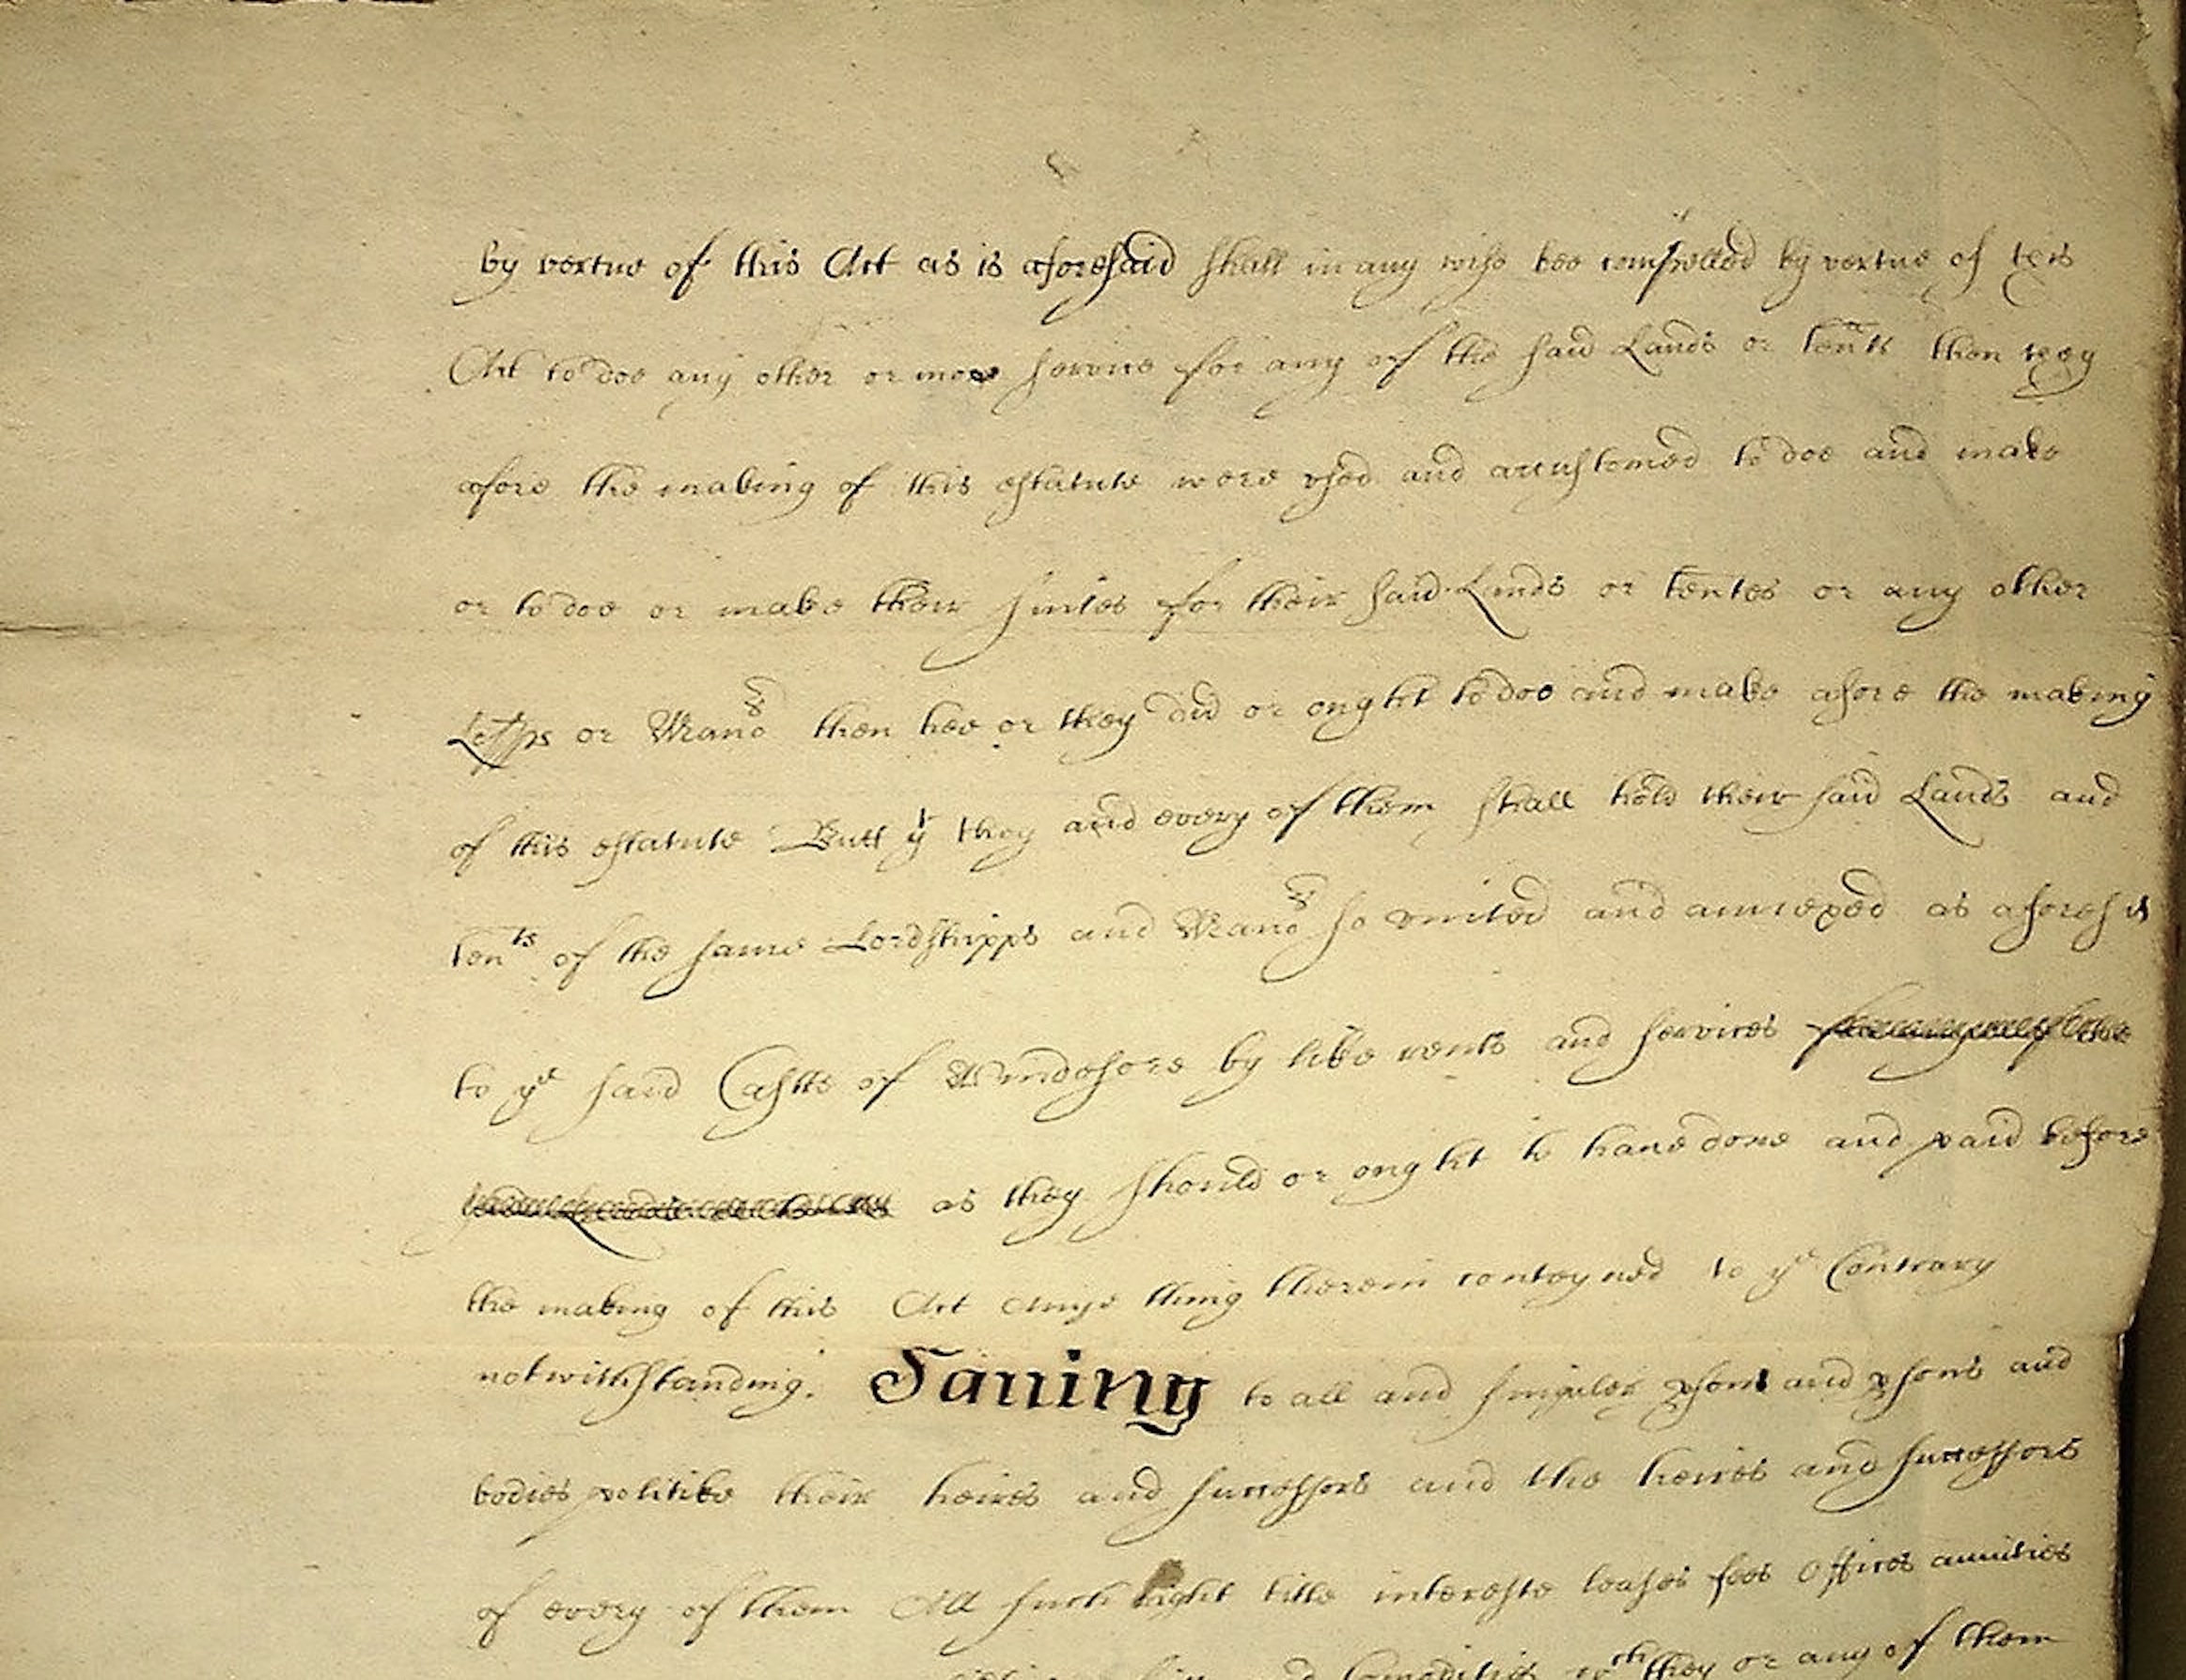 by vertue of this Act as is aforesaid shall in any wise bee compelled by vertue of this
Act to doe any other or more service for any of the said Lands or tents then they
afore the making of this estatute were vsed and accustomed to doe and make
or to doe or make their suites for their said Lands or tentes or any other
Lopps or Manors then hee or they did or ought to doe and make afore the making
of this estatute Butt yt they and every of them shall hold their said Lands and
tents of the same Lordshipps and Manors so vnited and annexed as aforesd
to ye said Castle of Windesore by like rents and services
as they should or ought to haue done and paid before
the making of this Act anye thing therein conteyned to ye Contrary
notwithstanding. Sauing to all and singuler psons and psons and
bodies politike their heires and successors and the heires and successors
of every of them All such right title intereste leases fees Offices annuities
Comodities wch they or any of them